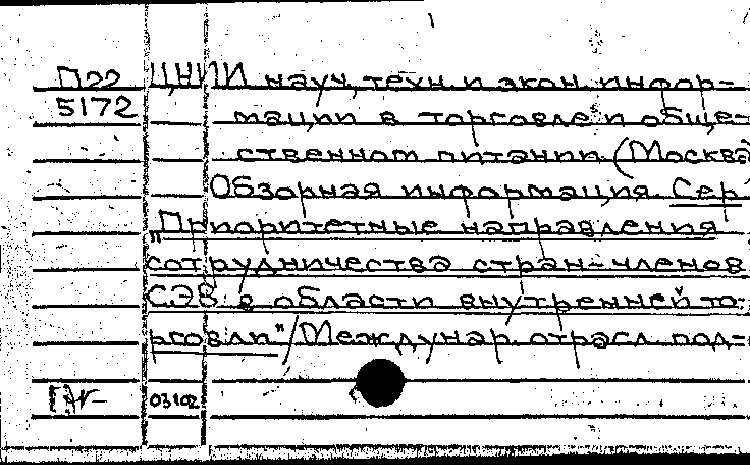 П22 ЦНИИ науч, техн. и экон. инфор-
5172 мации в торговле и обще-
ственном питании (Москва
Обзорная информация. Сер.
„Приоритетные направления
сотрудничества стран-членов
СЭВ в области внутренней то-
рговли"/Междунар. отрасл. под-
03102